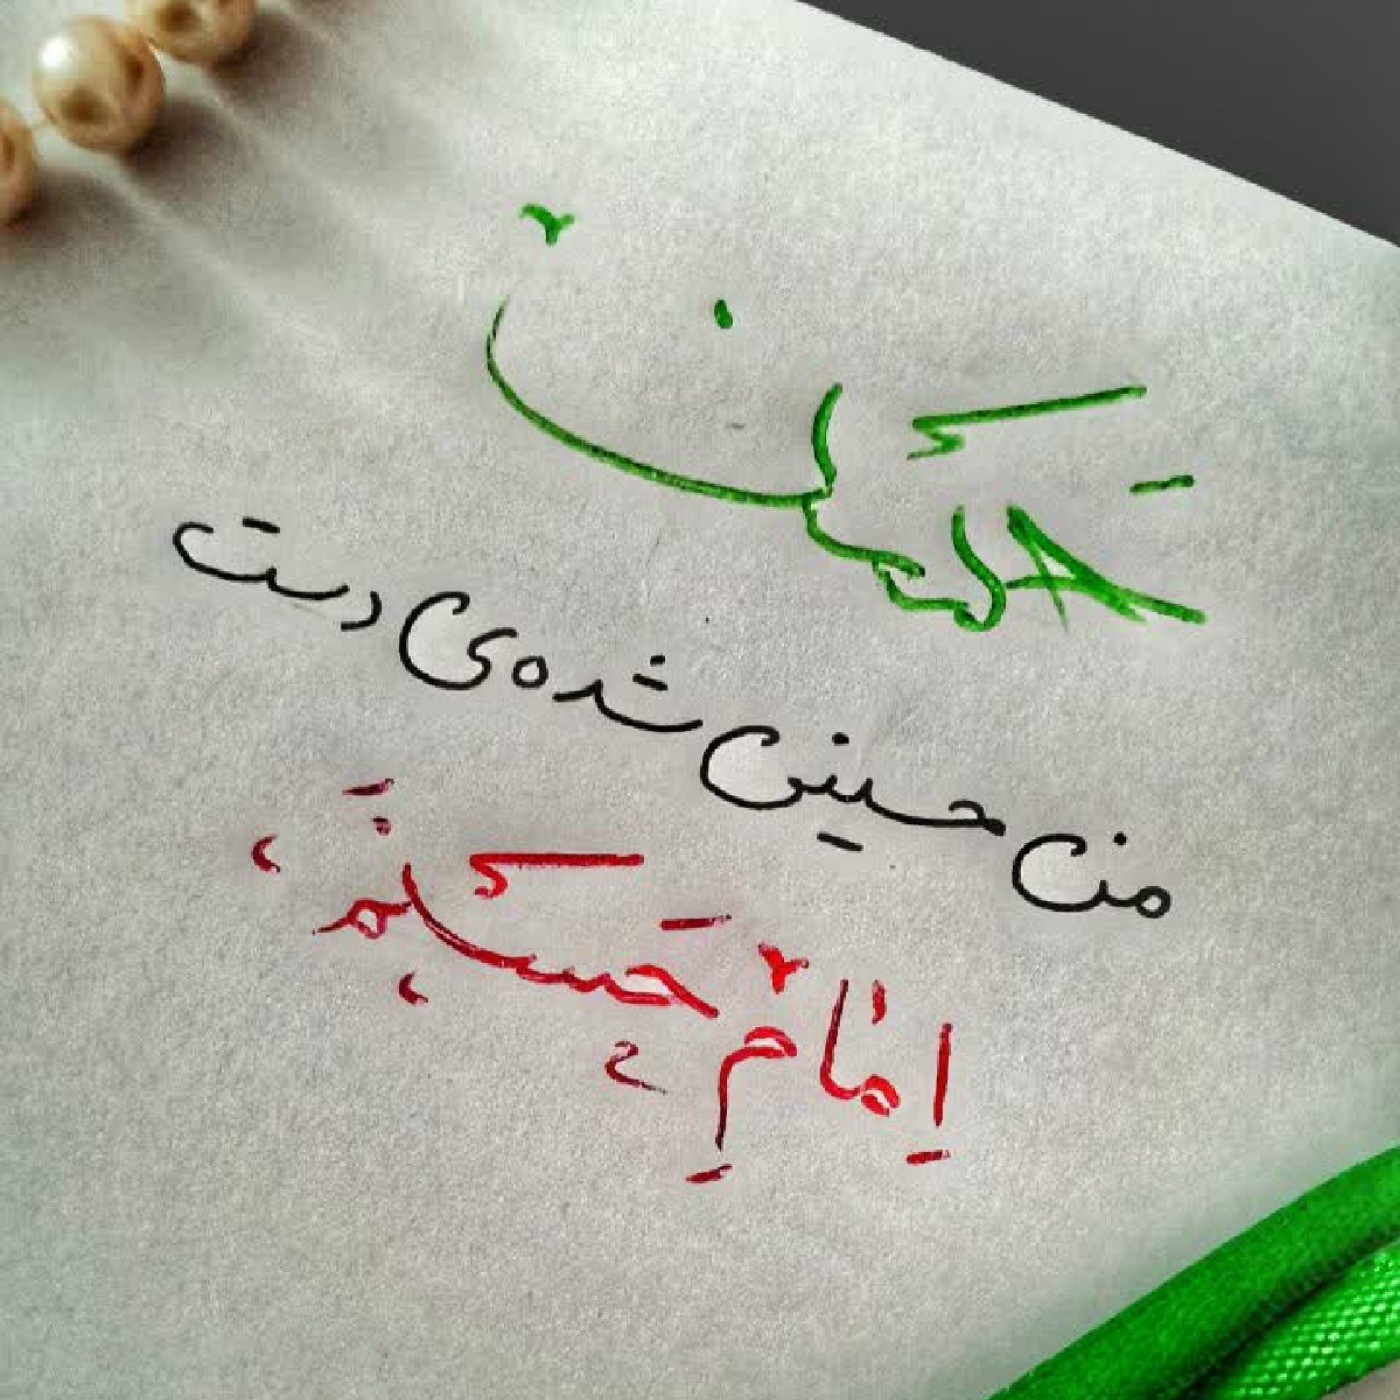 من حسینی شده‌ی دست
اِمامِ حَسَنَم